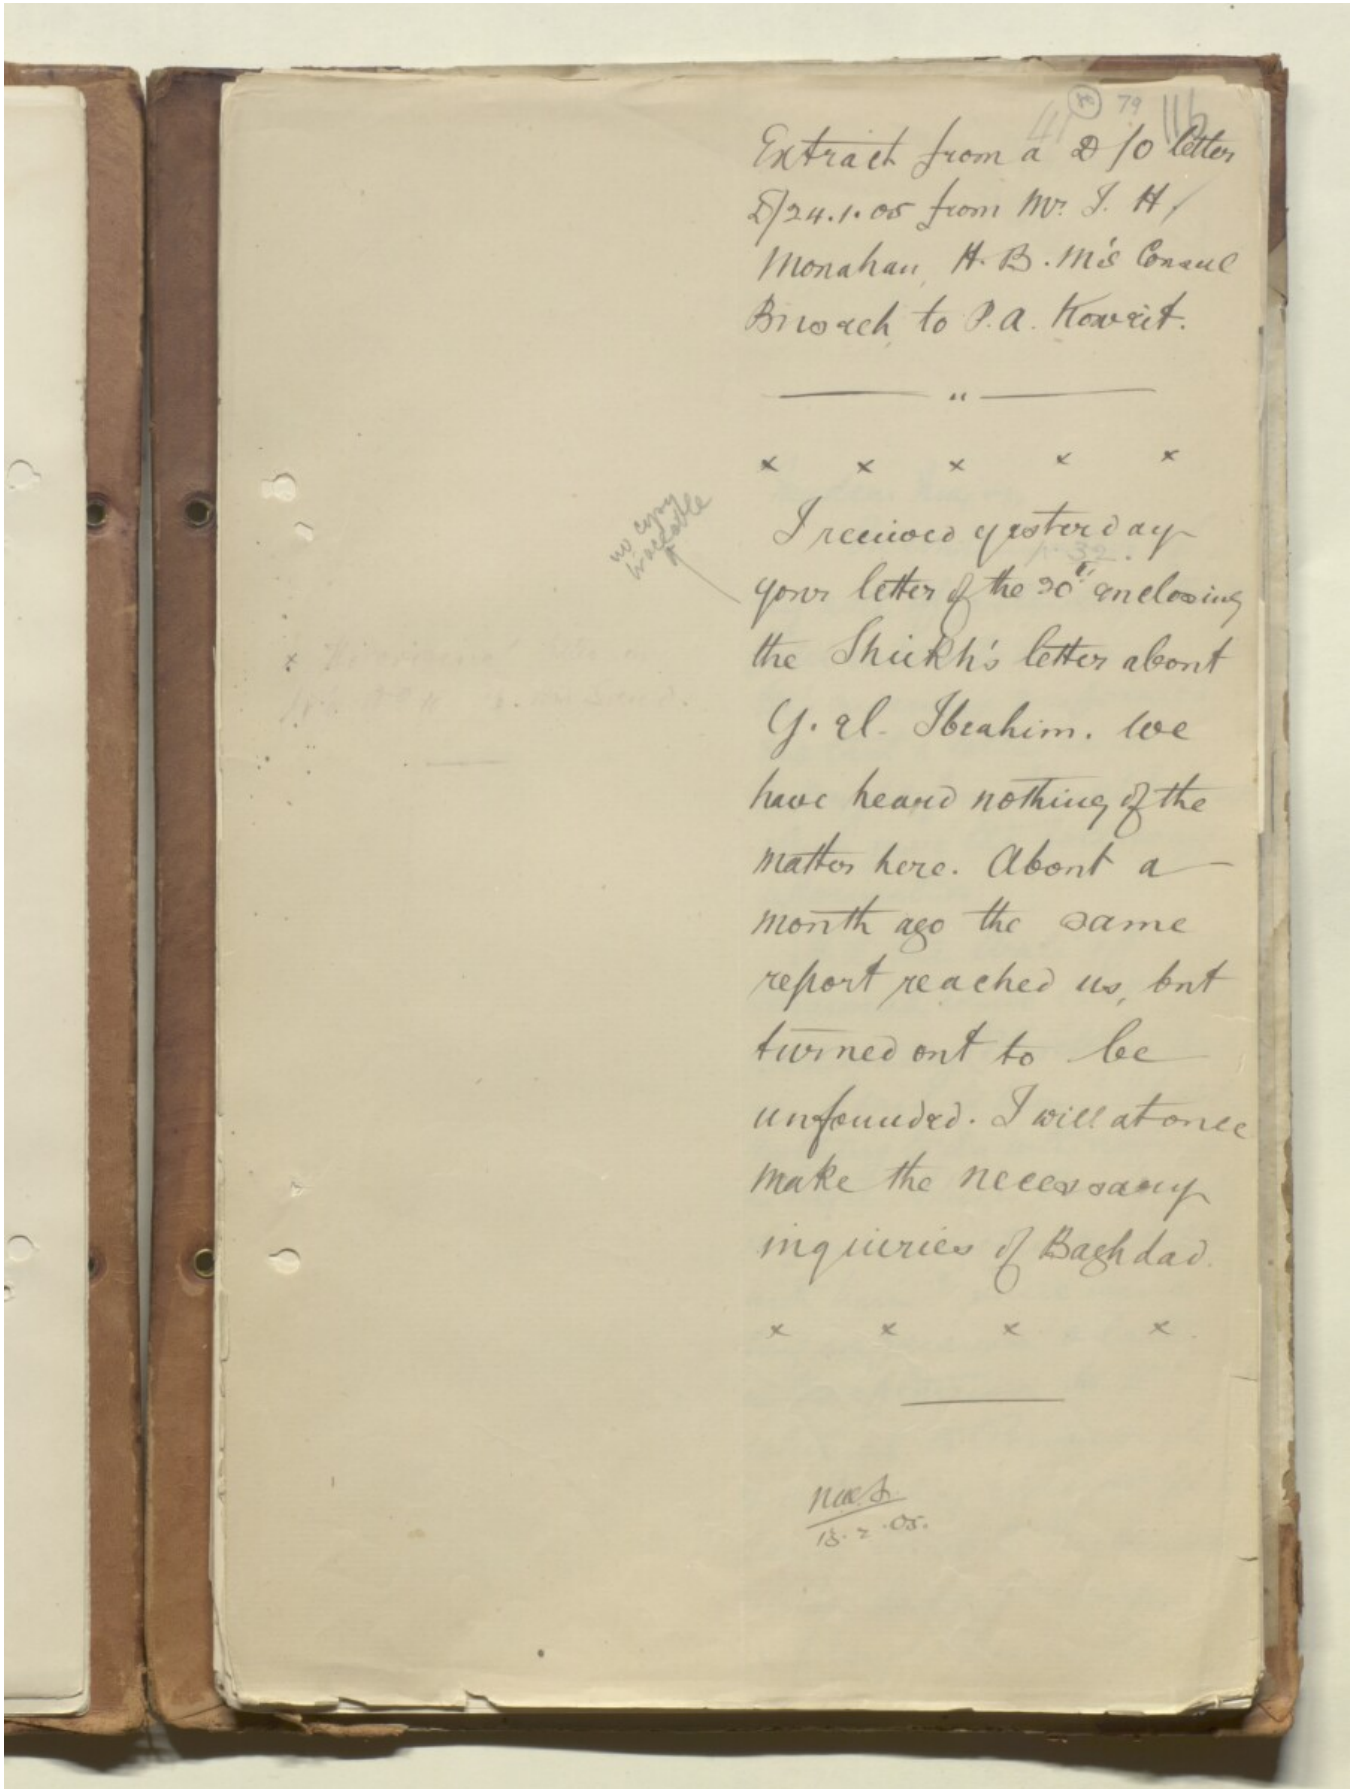 80 79 116
41
Extract from a D/O letter
D/24.1.05 from Mr. J. H.
Monahan, H. B. M's Consul
Busreh, to P.A. Koweit.
"
x x x x x
no copy
traceable
I received yesterday
p. 32.
your letter of the 20th enclosing
the Sheikh's letter about
Y. al. Ibrahim. We
have heard nothing of the
matter here. About a
month ago the same
report reached us, but
turned out to be
unfounded. I will at once
make the necessary
inquiries of Baghdad.
x x x x
13.2.05.